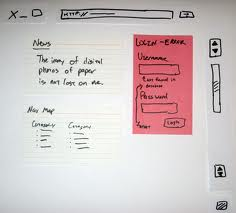 HTTP://
News
The irony of digital
photos of paper
is not lost on me.
Nav Map
Category Category
LOGIN - ERROR
Username
* not found in
database
Password
Login